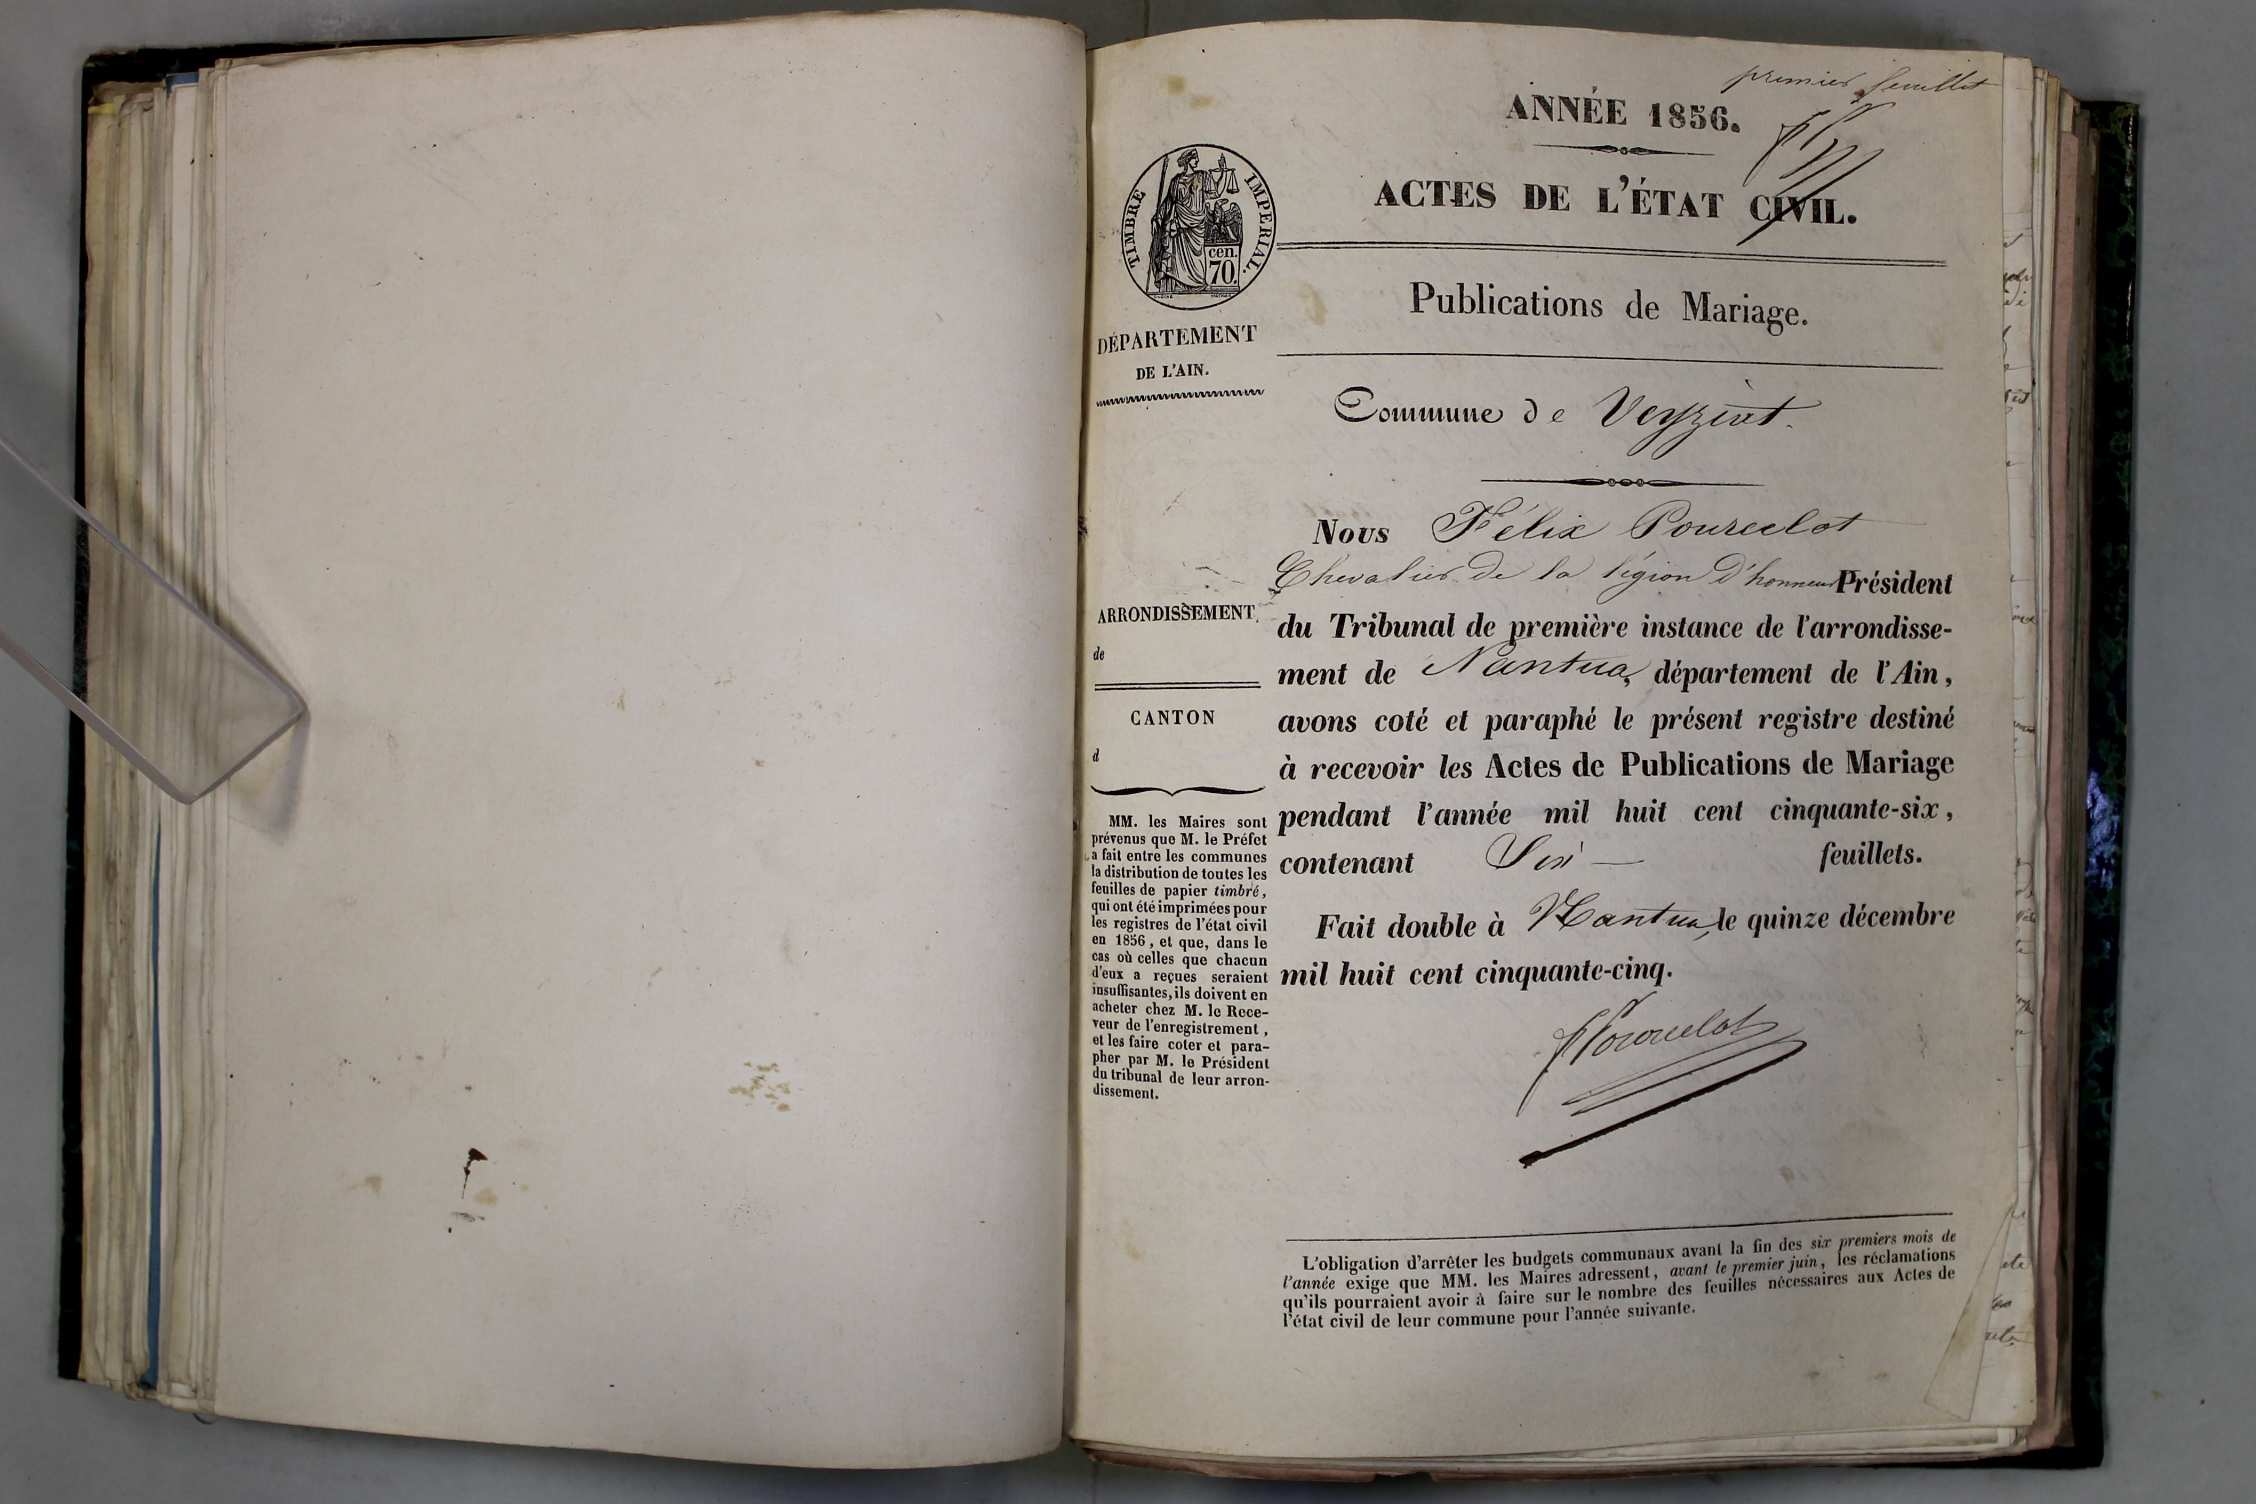 premier feuillet
ANNÉE 1856.
ACTES DE L'ÉTAT CIVIL.
TIMBRE IMPERIAL.
cen.
70.
Publications de Mariage.
DÉPARTEMENT
DE L'AIN.
Commune de Veyziat.
Nous Félix Pourcelot
Chevalier de la légion d'honneur Président
du Tribunal de première instance de l'arrondisse-
ment de Nantua, département de l'Ain,
avons coté et paraphé le présent registre destiné
à recevoir les Actes de Publications de Mariage
pendant l'année mil huit cent cinquante-six,
contenant Six feuillets.
Fait double à Nantua, le quinze décembre
mil huit cent cinquante-cinq.
FPourcelot
ARRONDISSEMENT
de
CANTON
d
MM. les Maires sont
prévenus que M. le Préfet
a fait entre les communes
la distribution de toutes les
feuilles de papier timbré,
qui ont été imprimées pour
les registres de l'état civil
en 1856, et que, dans le
cas où celles que chacun
d'eux a reçues seraient
insuffisantes, ils doivent en
acheter chez M. le Rece-
veur de l'enregistrement,
et les faire coter et para-
pher par M. le Président
du tribunal de leur arron-
dissement.
L'obligation d'arrêter les budgets communaux avant la fin des six premiers mois de
l'année exige que MM. les Maires adressent, avant le premier juin, les réclamations
qu'ils pourraient avoir à faire sur le nombre des feuilles nécessaires aux Actes de
l'état civil de leur commune pour l'année suivante.